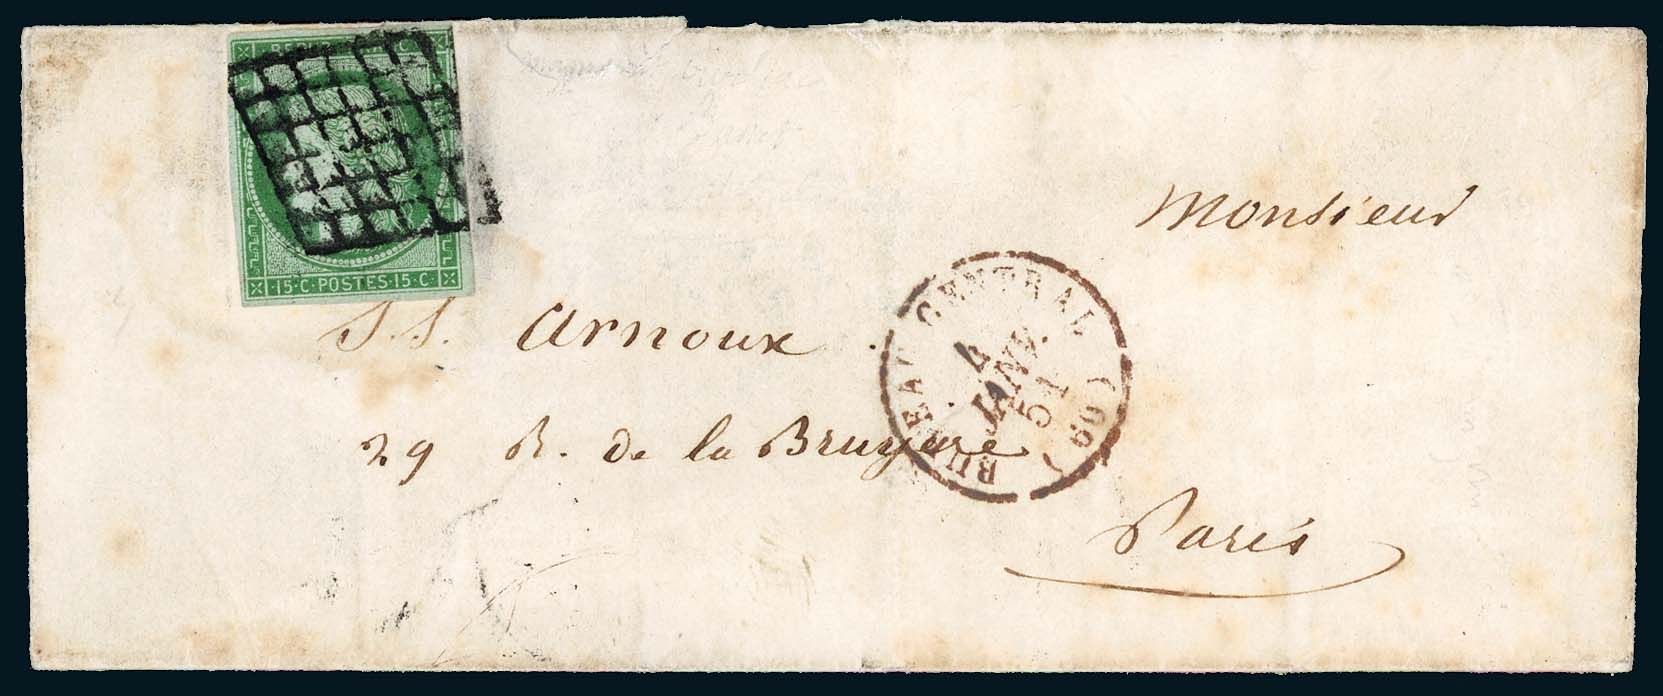 15·C·POSTES·15·C·
Monsieur
S. S. Arnoux
29 R. de la Bruyere
Paris
BUREAU CENTRAL (60)
4
JANV.
51